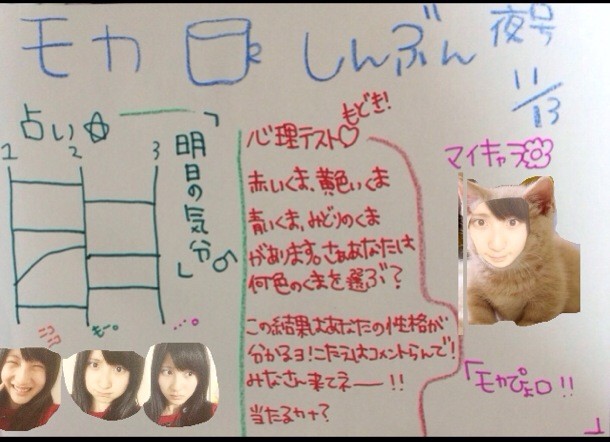 モカ しんぶん
夜号
11/13
占い☆
「明日の気分」
1 2 3
心理テスト♡
もどき!
赤いくま、黄色いくま
青いくま、みどりのくま
があります。さああなたは
何色のくまを選ぶ?
この結果はあなたの性格が
分かるヨ!こたえはコメントらんで!
みなさん来てネー!!
当たるカナ?
マイキャラ
「モカぴょ
!!」
ニコニコ
もー。